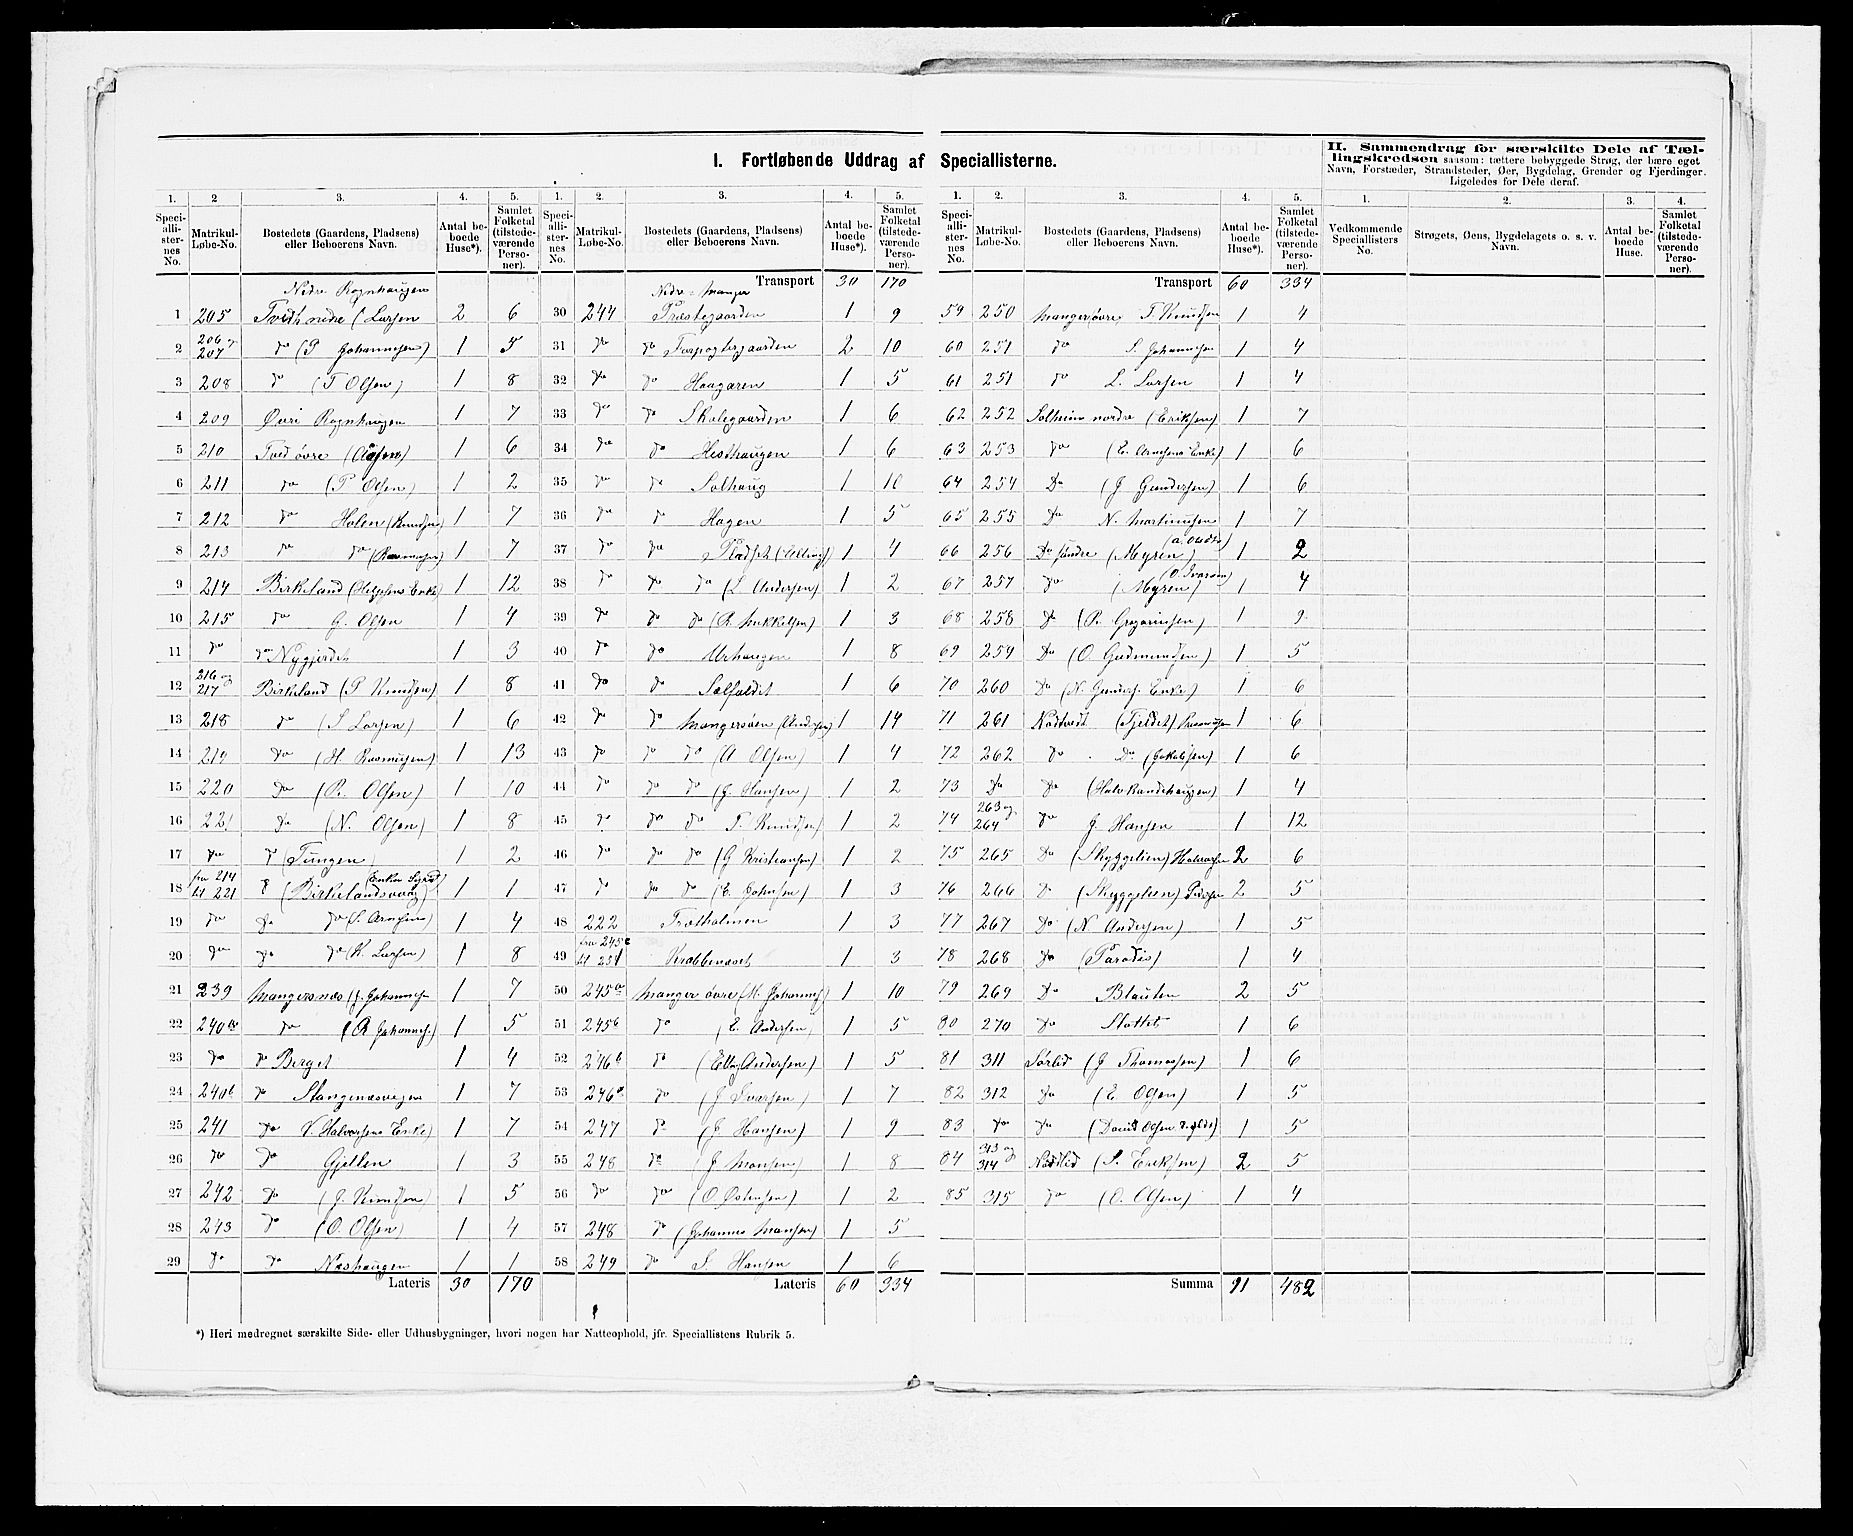 I. Fortløbende Uddrag af Speciallisterne.
II. Sammendrag for særskilte Dele af Tællingskredsen saasom: tættere bebyggede Strøg, der bære eget
Navn, Forstæder, Strandsteder, Øer, Bygdelag, Grender og Fjerdinger.
Ligeledes for Dele deraf.
1. 2 3. 4. 5. 1. 2. 3. 4. 5. 1. 2. 3. 4. 5. 1. 2. 3. 4.
Speciallisternes No. Matrikul-Løbe-No. Bostedets (Gaardens, Pladsens) eller Beboerens Navn. Antal beboede Huse*). Samlet Folketal (tilstedeværende Personer).
Speciallisternes No. Matrikul-Løbe-No. Bostedets (Gaardens, Pladsens) eller Beboerens Navn. Antal beboede Huse*). Samlet Folketal (tilstedeværende Personer).
Speciallisternes No. Matrikul-Løbe-No. Bostedets (Gaardens, Pladsens) eller Beboerens Navn. Antal beboede Huse*). Samlet Folketal (tilstedeværende Personer).
Vedkommende Speciallisters No. Strøgets, Øens, Bygdelagets o. s. v. Navn. Antal beboede Huse. Samlet Folketal (tilstedeværende Personer).
Nedre Rognhaugen
1 205 Tvedt nedre (Larsen 2 6
2 206 og 207 Do (P Johannesen) 1 5
3 208 Do (T Olsen) 1 8
4 209 Øvri Rognhaugen 1 7
5 210 Tved øvre 1 6
6 211 Do (P Olsen) 1 2
7 212 Do Holen (Knudsen) 1 7
8 213 Do Do (Rasmusen) 1 7
9 214 Birkeland (Helgesens Enke) 1 12
10 215 Do G. Olsen 1 4
11 Do Do Nygjerdet 1 3
12 216 og 217 Birkeland (P Knudsen) 1 8
13 218 Do (S Larsen) 1 6
14 219 Do (H. Rasmusen) 1 13
15 220 Do (R. Olsen) 1 10
16 221 Do (N. Olsen) 1 8
17 Do Do (Tungen) 1 2
18 fra 214 til 221 (Birkelandsvaag 1 1
19 Do Do Do (S. Arnesen) 1 4
20 Do Do Do (K. Larsen) 1 8
21 239 Mangersnæs (J. Johannesen 1 7
22 240a Do (R Johannes.) 1 5
23 Do Do Berget 1 4
24 240b Do Stangenæsvegen 1 7
25 241 Do V. Halvorsens Enke) 1 7
26 Do Do Gjellen 1 3
27 242 Do (J. Knudsen) 1 5
28 243 Do (O. Olsen) 1 4
29 Do Do Næshaugen 1 1
Lateris 30 170
Transport 30 170
Nedre Manger
30 244 Præstegaarden 1 9
31 Do Do Forpagtergaarden 2 10
32 Do Do Haagaren 1 5
33 Do Do Skolegaarden 1 6
34 Do Do Hesthaugen 1 6
35 Do Do Solhaug 1 10
36 Do Do Hagen 1 5
37 Do Do Pladset 1 4
38 Do Do Do (L Andersen) 1 2
39 Do Do Do (R. Mikkelsen) 1 3
40 Do Do Urhaugen 1 8
41 Do Do Solfaldet 1 6
42 Do Do Mangersøen (Andersen) 1 14
43 Do Do Do (A Olsen) 1 4
44 Do Do Do (J. Hansen) 1 2
45 Do Do Do T. Knudsen) 1 2
46 Do Do Do (G Kristiansen) 1 2
47 Do Do Do (E. Johnsen) 1 3
48 222 Trætholmen 1 3
49 fra 245a til 251 Krabbenæset 1 3
50 245a Manger øvre (M. Johannes.) 1 10
51 245b Do (E. Andersen) 1 5
52 246b Do (Elling Andersen) 1 5
53 246a Do (J Iversen) 1 7
54 247 Do (J Hansen) 1 9
55 248 Do (J Monsen) 1 8
56 Do Do (O Østensen) 1 2
57 248 Do (Johannes Monsen) 1 5
58 249 Do S. Hansen 1 6
Lateris 60 334
Transport 60 334
59 250 Manger øvre T. Knudsen 1 4
60 251 Do S. Johannesen 1 4
61 251 Do L. Larsen 1 4
62 252 Solheim nordre (Eriksen) 1 7
63 253 Do (E. Arnesens Enke) 1 6
64 254 Do (J Gundersen) 1 6
65 255 Do N. Martinusen 1 7
66 256 Do søndre (Myren) 1 2
67 257 Do (Myren) (O. Ivarson) 1 4
68 258 Do (R. Gregoriusen) 1 9
69 259 Do (O. Gudmundsen) 1 5
70 260 Do (N. Gunders. Enke) 1 6
71 261 Nodtvedt (Fjeldet) Rasmusen 1 6
72 262 Do Do (Jakobsen) 1 6
73 Do Do (Halv Randshaugen) 1 4
74 263 og 264 Do J. Hansen 1 12
75 265 Do (Skyggelien) Halvorsen 2 6
76 266 Do (Skyggelien) Pedersen 2 5
77 267 Do (N. Andersen) 1 5
78 268 Do (Paradis) 1 4
79 269 Do Blauten 2 5
80 270 Do Slottet 1 6
81 311 Sørlid (J Thomassen) 1 6
82 312 Do (E Olsen) 1 5
83 Do Do (David Olsen 1 5
84 313 og 314 Nordlid (S. Eriksen) 2 5
85 315 Do (O. Olsen) 1 4
Summa 91 482
*) Heri medregnet særskilte Side- eller Udhusbygninger, hvori nogen har Natteophold, jfr. Speciallistens Rubrik 5.